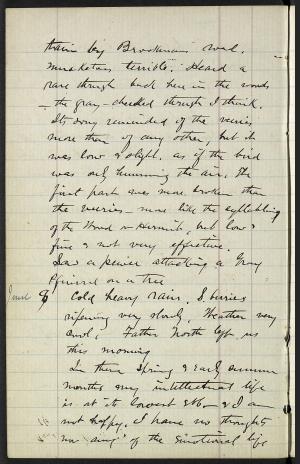 train by Brookman's road.
Musketoes terrible. Heard a
rare thrush back here in the woods
— the gray-cheeked thrush I think.
Its song reminded of the veeries
more than of any other, but it
was low & slight. as if the bird
was only humming the air. The
first part was more broken than
the veeries — more like the syllabling
of the Wood or hermit, but low &
fine & not very effective.
Saw a pewee attacking a Gray
squirrel on a tree
June 9 Cold heavy rain. S. berries
ripening very slowly. Weather very
cool. Father North left us
this morning
In these Spring & early summer
months my intellectual life
is at its lowest ebb — & I am
not happy. I have no thoughts
no "aing" of the emotional life